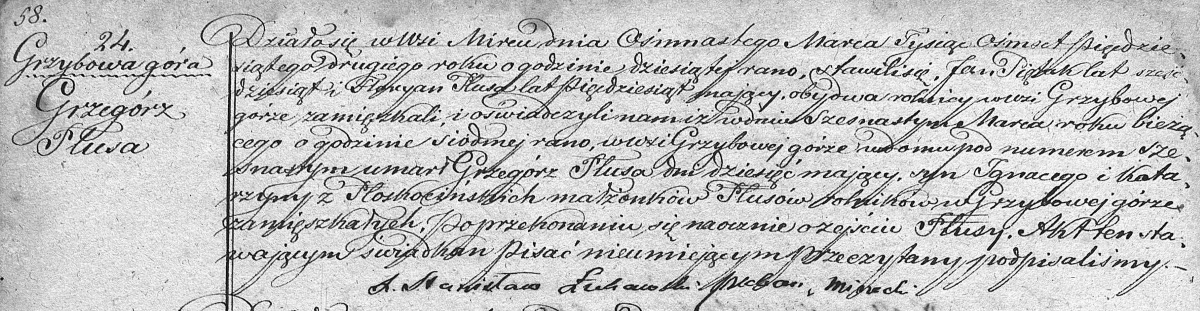 58.
24.
Grzybowa góra
Grzegórz
Płusa
Działo się w Wsi Mircu dnia Ośmnastego Marca Tysiąc Ośmset Pięćdzie-
siątego drugiego roku o godzinie dziesiątej rano, stawili się, Jan Piętak lat sześć-
dziesiąt i Floryan Płusa lat Pięćdziesiąt mający, obydwa rolnicy w wsi Grzybowej
górze zamięszkali, i oświadczyli nam iż w dniu Szesnastym Marca roku bieżą-
cego o godzinie siódmej rano, w wsi Grzybowej górze w domu pod numerem sze-
snastym umarł Grzegórz Płusa dni dziesięć mający, syn Ignacego i Kata-
rzyny z Płoskocińskich małżonków Płusów rolników w Grzybowej górze
zamięszkałych, Po przekonaniu się naocznie o zejściu Płusy, Akt ten sta-
wającym świadkom pisać nieumiejącym przeczytany podpisaliśmy.—
X. Stanisław Pleban Mirecki